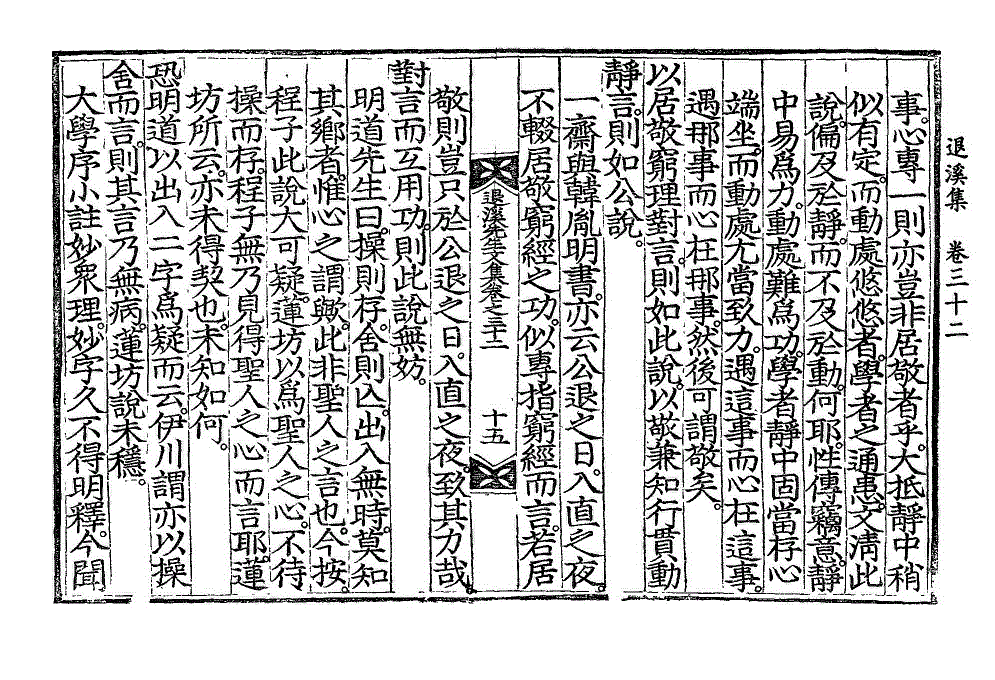 退溪集　卷三十二
事。心專一則亦豈非居敬者乎。大抵靜中稍
似有定。而動處悠悠者。學者之通患。文淸此
說。偏及於靜。而不及於動。何耶。性傳竊意。靜
中易爲力。動處難爲功。學者靜中固當存心
端坐。而動處尤當致力。遇這事而心在這事。
遇那事而心在那事。然後可謂敬矣。
以居敬窮理對言。則如此說。以敬兼知行貫動
靜言。則如公說。
一齋與韓胤明書。亦云公退之日。入直之夜。
不輟居敬窮經之功。似專指窮經而言。若居
退溪先生文集卷之三十二
十五
敬則豈只於公退之日。入直之夜。致其力哉。
對言而互用功。則此說無妨。
明道先生曰。操則存。舍則亡。出入無時。莫知
其鄕者。惟心之謂歟。此非聖人之言也。今按
程子此說大可疑。蓮坊以爲聖人之心。不待
操而存。程子無乃見得聖人之心而言耶。蓮
坊所云。亦未得契也。未知如何。
恐明道以出入二字爲疑而云。伊川謂亦以操
舍而言。則其言乃無病。蓮坊說未穩。
大學序小註妙衆理。妙字久不得明釋。今聞